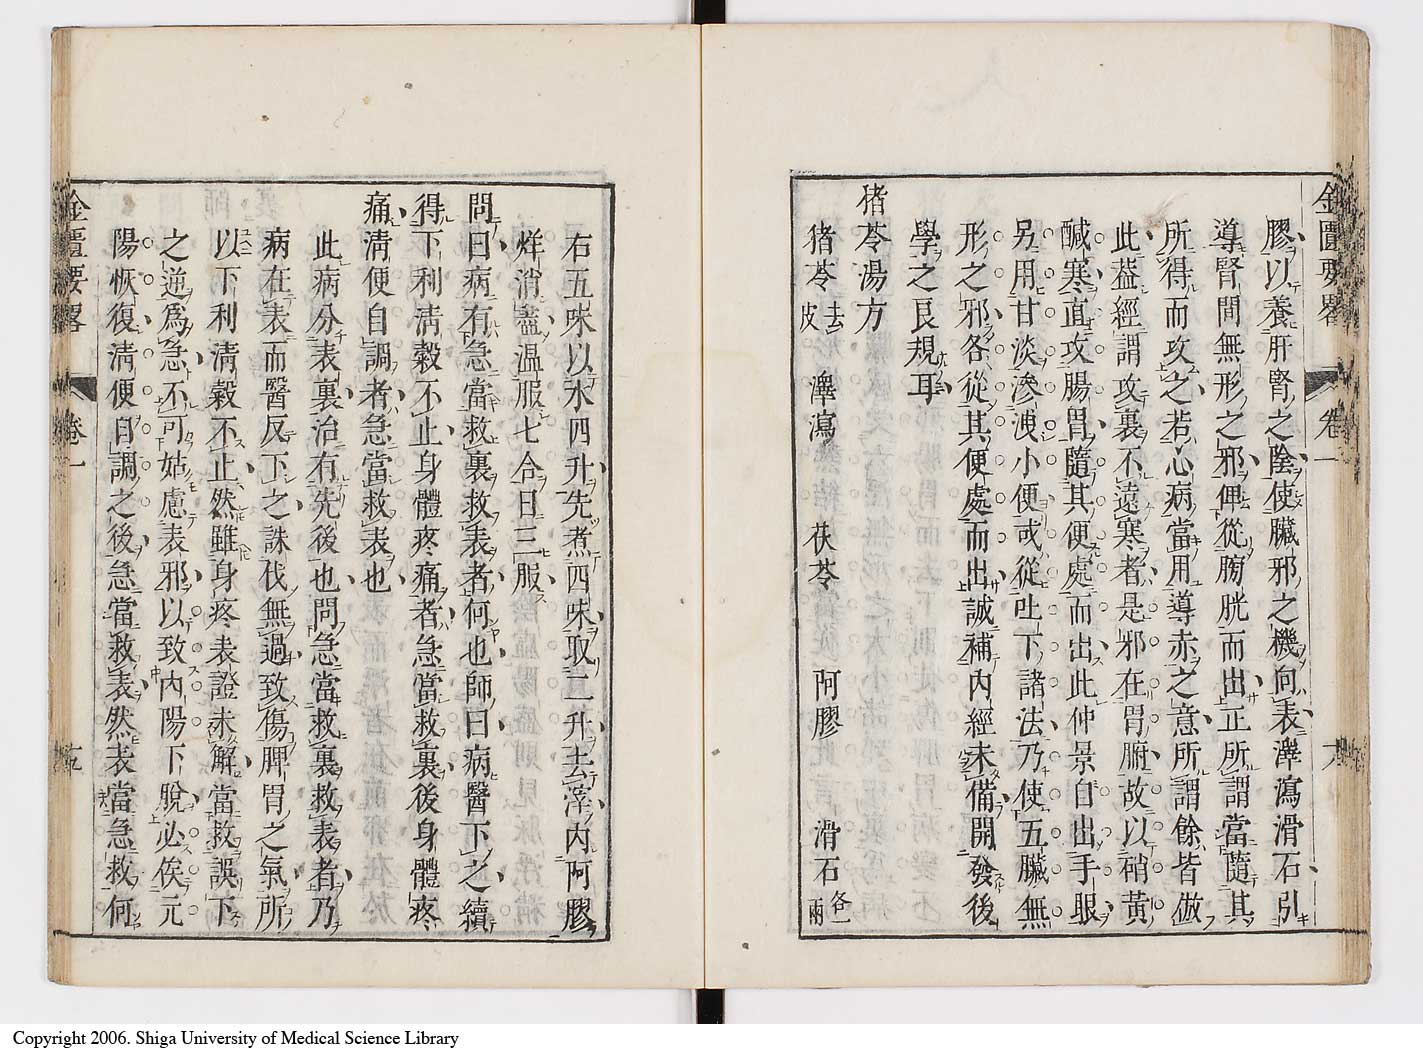 金匱要畧 卷一
膠以養肝腎之陰使臟邪之機向表澤瀉滑石引
導腎間無形之邪俾從膀胱而出正所謂當隨其
所得而攻之若心病當用導赤之意所謂餘皆倣
此葢經謂攻裏不遠寒者是邪在胃腑故以硝黄
醎寒直攻腸胃隨其便處而出此仲景自出手眼
另用甘淡滲洩小便或從吐下諸法乃使五臟無
形之邪各從其便處而出誠補内經未備開發後
學之良規耳
猪苓湯方
猪苓去皮 澤瀉 茯苓 阿膠 滑石各一兩
右五味以水四升先煮四味取二升去滓内阿膠
烊消盡温服七合日三服
問曰病有急當救裏救表者何也師曰病醫下之續
得下利清穀不止身體疼痛者急當救裏後身體疼
痛清便自調者急當救表也
此病分表裏治有先後也問急當救裏救表者乃
病在表而醫反下之誅伐無過致傷脾胃之氣所
以下利清穀不止然雖身疼表證未解當救誤下
之逆為急不可姑慮表邪以致内陽下脫必俟元
陽恢復清便自調之後急當救表然表當急救何
金匱要畧 卷一
Copyright 2006. Shiga University of Medical Science Library